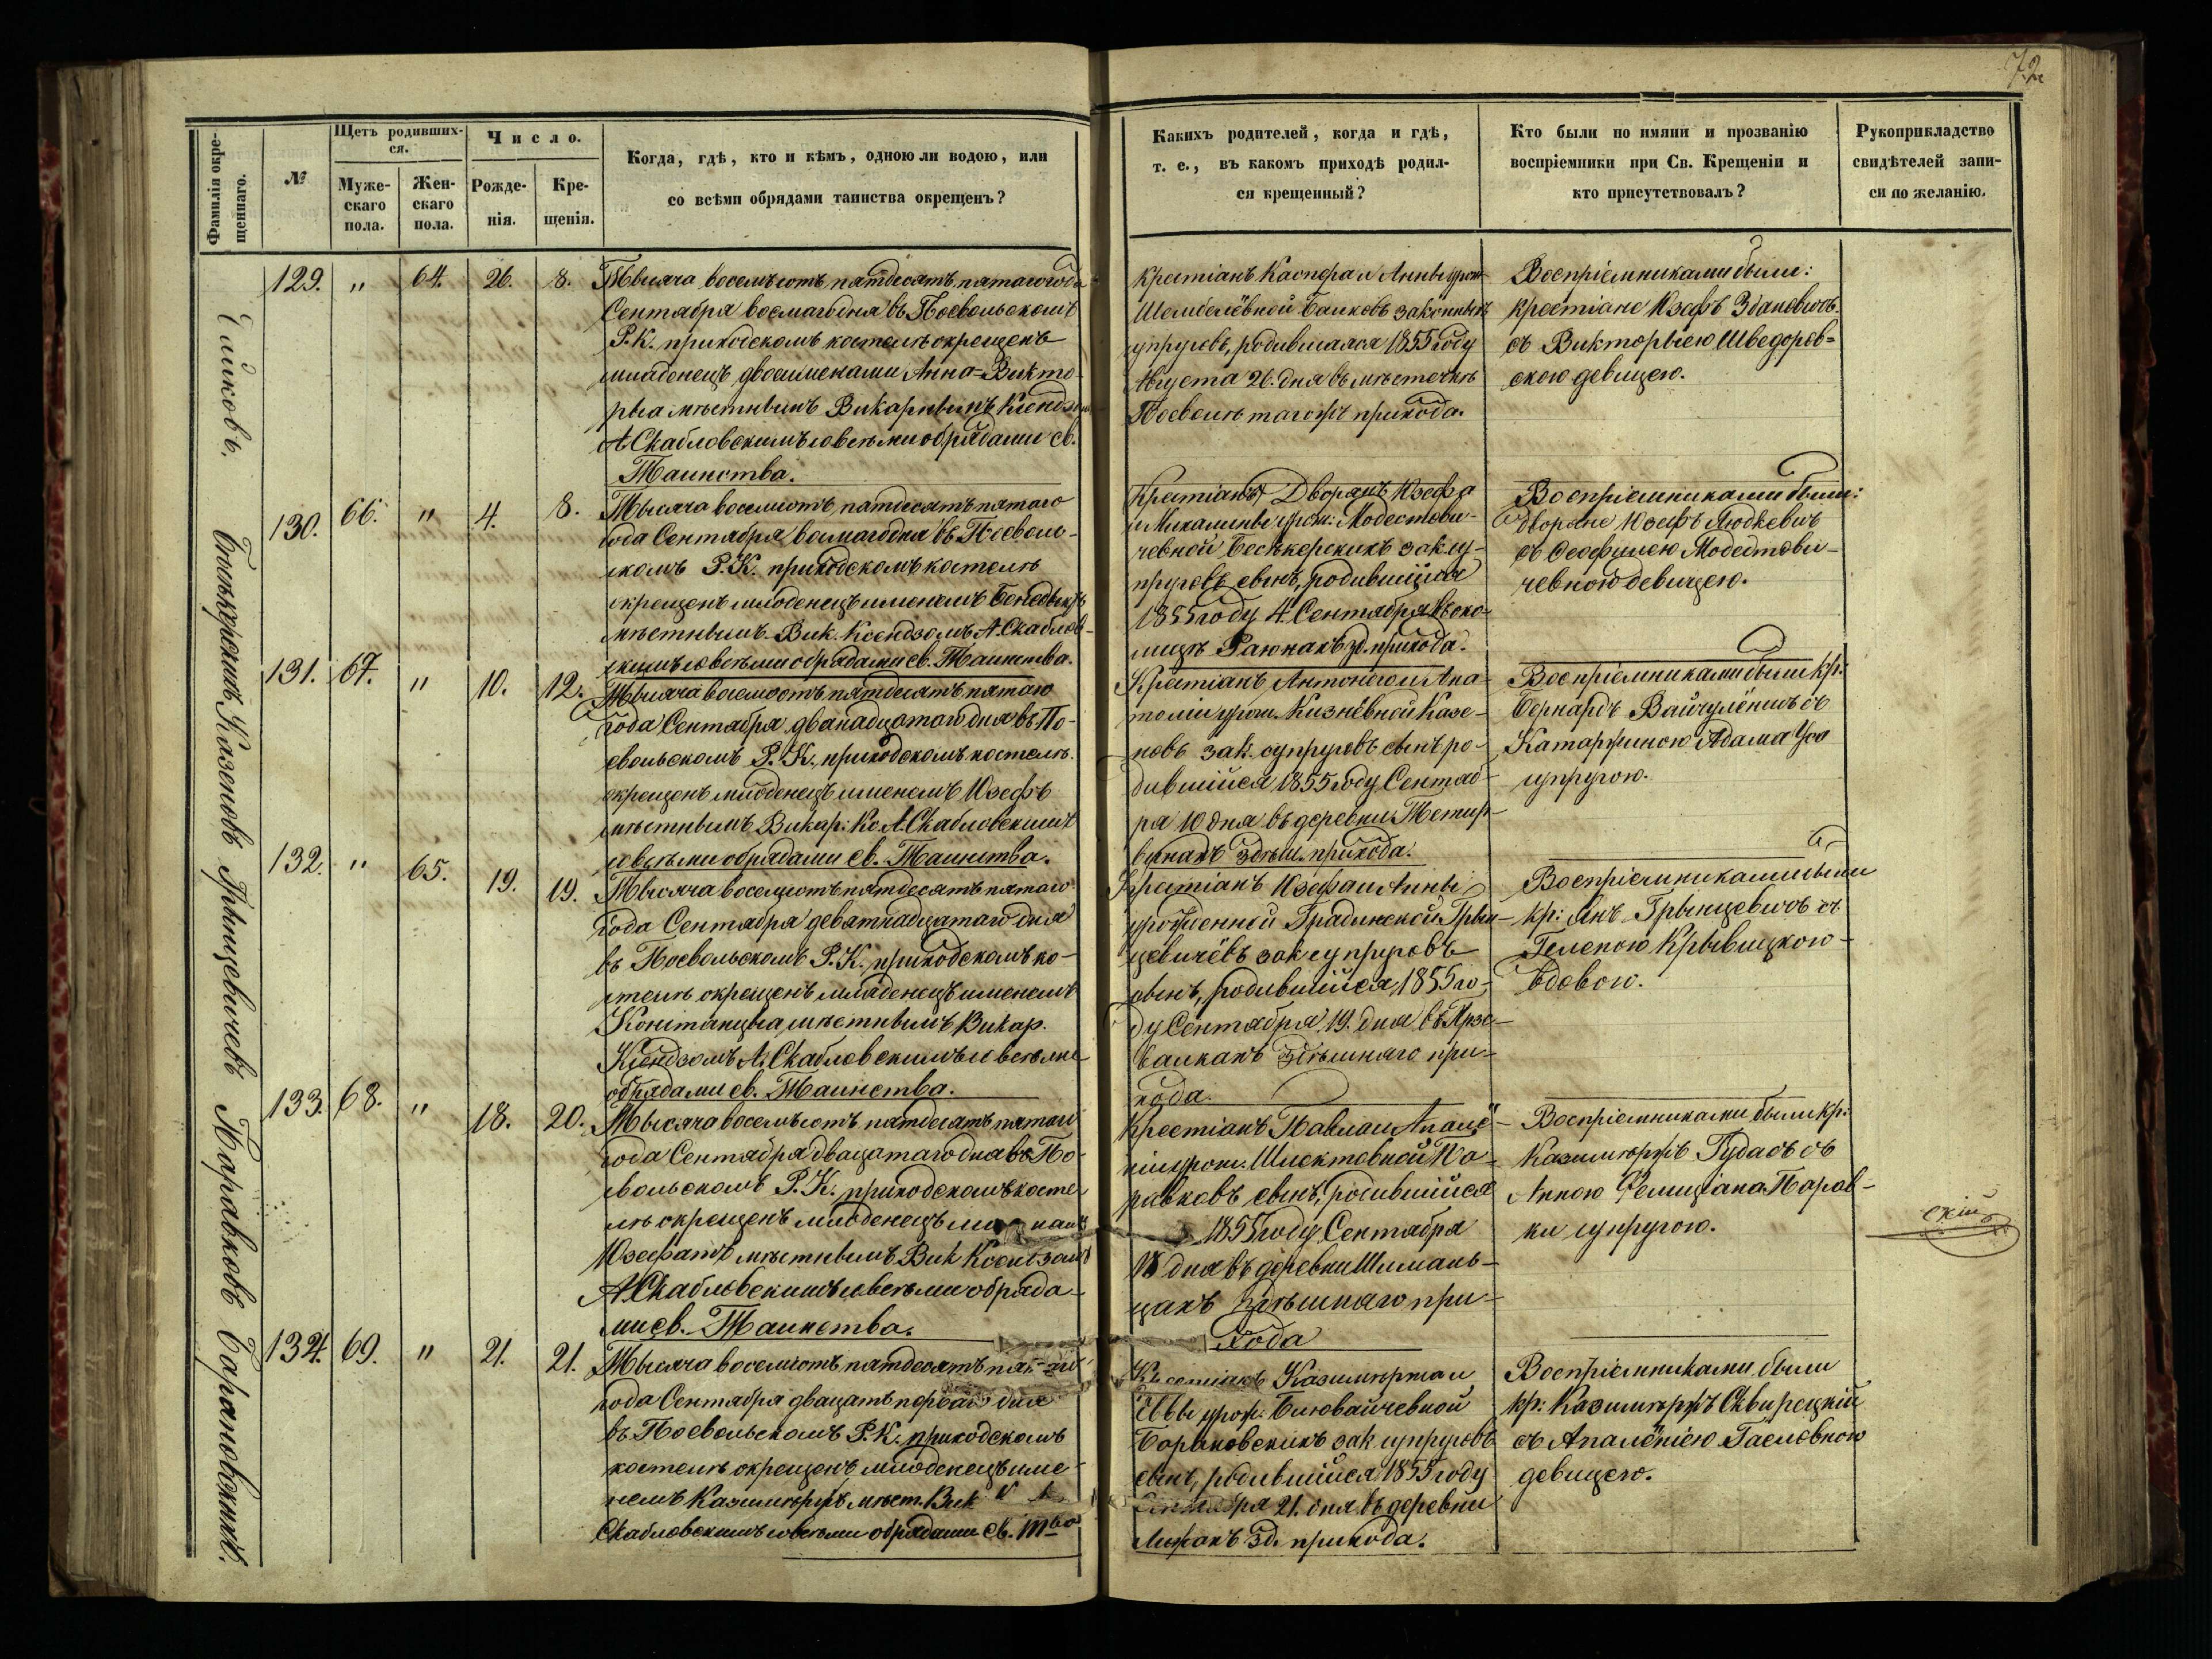 72
Фамилія окре-
щеннаго.
№
Щетъ родивших-
ся.
Муже-
скаго
пола.
Жен-
скаго
пола.
Число.
Рожде-
нія.
Кре-
щенія.
Когда, гдѣ, кто и кѣмъ, одною ли водою, или
со всѣми обрядами таинства окрещенъ?
Какихъ родителей, когда и гдѣ,
т. е., въ какомъ приходѣ родил-
ся крещенный?
Кто были по имяни и прозванію
воспріемники при Св. Крещеніи и
кто присутствовалъ?
Рукоприкладство
свидѣтелей запи-
си по желанію.
129. " 64. 26. 8.
Тысяча восемъсотъ пятдесятъ пятаго года
Сентября восмаго дня въ Посвольскомъ
Р. К. приходскомъ костелѣ окрещенъ
младенецъ двоименами Анна=Викто-
рыа мѣстнымъ Викарнымъ Ксендзомъ
А. Скабловскимъ со всѣми обрядами св.
Таинства.
Крестіанъ Каспера и Анны урож.
законныхъ
супруговъ, родившаяся 1855 году
Августа 26. дня въ мѣстечкѣ
Посволѣ тагожъ прихода.
Воспріемниками были:
крестіане Юзефъ Здановичъ
съ Викторыею Шведоров=
скою девицею.
130. 66. " 4. 8.
Тысяча восемсотъ пятдесятъ пятаго
года Сентября восмаго дня въ Посволь-
скомъ Р. К. приходскомъ костелѣ
окрещенъ младенецъ именемъ Бенедыктъ
мѣстнымъ Вик. Ксендзомъ А. Скаблов-
скимъ со всѣми обрядами св. Таинства.
Дворянъ Юзефа
и Михалины урож: Модестови-
чевной зак. су-
пруговъ сынъ, родившійся
1855 году 4. Сентября въ око-
лицѣ зд. прихода.
Воспріемниками были:
дворяне Юзефъ Людкевичъ
съ Теофилею Модестови-
чевною девицею.
131. 67. " 10. 12.
Тысяча восемсотъ пятдесятъ пятаго
года Сентября дванадцатаго дня въ По-
свольскомъ Р. К. приходскомъ костелѣ
окрещенъ младенецъ именемъ Юзефъ
мѣстнымъ Викар: Кс. А. Скабловскимъ
со всѣми обрядами св. Таинства.
Крестіанъ Антонего и Ана-
толіи урож. Казе-
новъ зак. супруговъ сынъ ро-
дившійся 1855 году Сентяб-
ря 10 дня въ деревни
здѣш. прихода.
Воспріемниками были кр:
Бернардъ съ
Катаржиною Адама
супругою.
132. " 65. 19. 19.
Тысяча восемсотъ пятдесятъ пятаго
года Сентября девятнадцатаго дня
въ Посвольскомъ Р. К. приходскомъ ко-
стелѣ окрещенъ младенецъ именемъ
Констанцыа, мѣстнымъ Викар.
Ксендзомъ А. Скабловскимъ со всѣми
обрядами св. Таинства.
Крестіанъ Юзефа и Анны
урожденной Градинской Грын-
цевичёвъ зак. супруговъ
сынъ, родившійся 1855 го-
ду Сентября 19. дня въ
здѣшняго при-
хода.
Воспріемниками были
кр: Янъ Грынцевичъ съ
Геленою Крывицкою
вдовою.
133. 68. " 18. 20.
Тысяча восемъсотъ пятдесятъ пятаго
года Сентября двацатаго дня въ По-
свольскомъ Р. К. приходскомъ косте-
лѣ окрещенъ младенецъ
Юзефатъ мѣстнымъ Вик. Ксендзомъ
А. Скабловскимъ со всѣми обряда-
ми св. Таинства.
Крестіанъ Павла и
урож. По-
равковъ сынъ, родившійся
1855 году Сентября
18 дня въ деревни Шимань-
цахъ здѣшняго при-
хода
Воспріемниками были кр:
Казимѣржъ Гудасъ съ
Анною Фелиціана Порав-
ки супругою.
скій
134. 69. " 21. 21.
Тысяча восемсотъ пятдесятъ пятаго
года Сентября двацать перваго дня
въ Посвольскомъ Р. К. приходскомъ
костелѣ окрещенъ младенецъ име-
немъ Казимѣржъ мѣст. Вик.
Скабловскимъ со всѣми обрядами св. Т-ва
Крестіанъ Казимѣржа и
Эвы урож.
Барановскихъ зак. супруговъ
сынъ, родившійся 1855 году
Сентября 21. дня въ деревни
зд. прихода.
Воспріемниками были
кр: Казимѣржъ Сквирецкій
съ Апалёніею
девицею.
Казеновъ
Грынцевичевъ
Поравковъ
Барановскихъ.